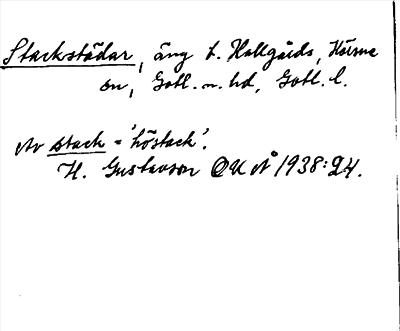 Stackstädar, äng t. Hallgårds, Körne
sn, Gotl. n. hd, Gotl. l.
Av stack = 'höstack'.
H. Gustavson OUÅ 1938:24.